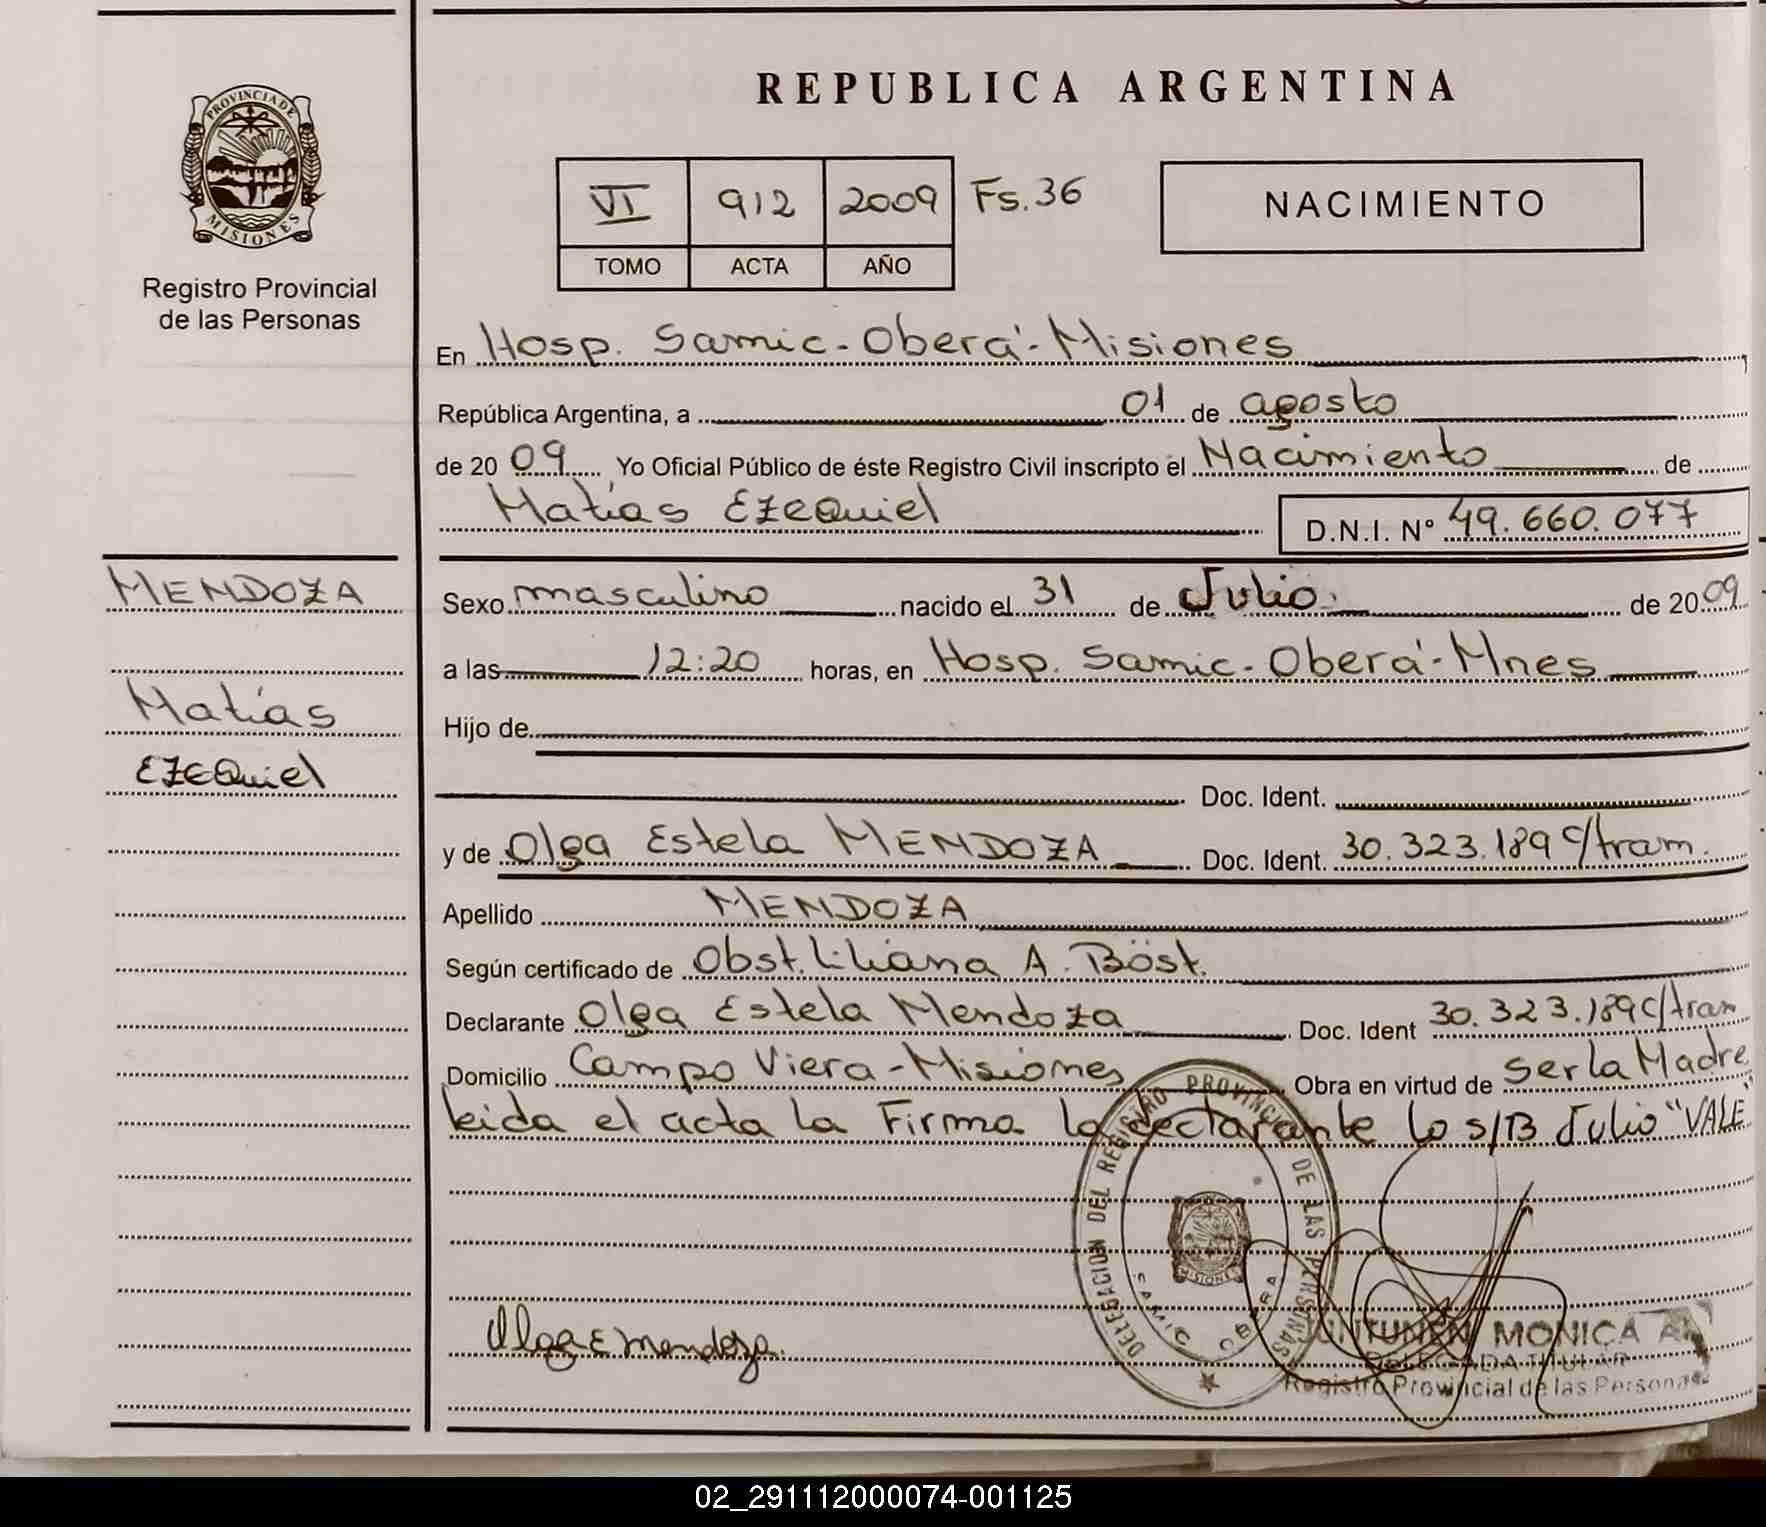 REPUBLICA ARGENTINA
PROVINCIA DE
MISIONES
Registro Provincial
de las Personas
VI 912 2009 Fs. 36
TOMO ACTA AÑO
NACIMIENTO
En Hosp. Samic - Oberá - Misiones
República Argentina, a 01 de agosto
de 2009 Yo Oficial Público de éste Registro Civil inscripto el Nacimiento de
Matías Ezequiel D.N.I. Nº 49.660.077
MENDOZA
Matías
Ezequiel
Sexo masculino nacido el 31 de Julio. de 2009
a las 12:20 horas, en Hosp. Samic - Oberá - Mnes
Hijo de
Doc. Ident.
y de Olga Estela MENDOZA Doc. Ident. 30.323.189 c/tram.
Apellido MENDOZA
Según certificado de Obst. Liliana A. Böst.
Declarante Olga Estela Mendoza Doc. Ident 30.323.189 c/tram
Domicilio Campo Viera - Misiones Obra en virtud de ser la Madre
leida el acta la Firma la declarante lo s/B Julio "VALE"
DELEGACION DEL REGISTRO PROVINCIAL DE LAS PERSONAS
SAMIC OBERA
MISIONES
Olga E Mendoza.
MONICA A.
DELEGADA TITULAR
Registro Provincial de las Personas
02_291112000074-001125